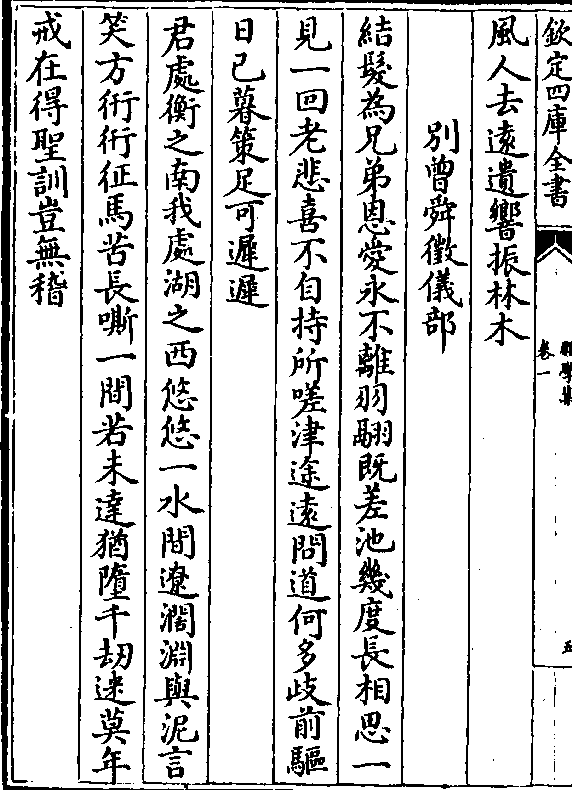 欽定四庫全書
卷一
風人去遠遺響振林木
別曾舜徵儀部
結髮為兄弟恩愛永不離羽翮既差池幾度長相思一
見一回老悲喜不自持所嗟津途遠問道何多歧前驅
日已暮策足可遲遲
君處衡之南我處湖之西悠悠一水間遼濶淵與泥言
笑方衎衎征馬苦長嘶一間若未達猶墮千劫迷莫年
戒在得聖訓豈無稽